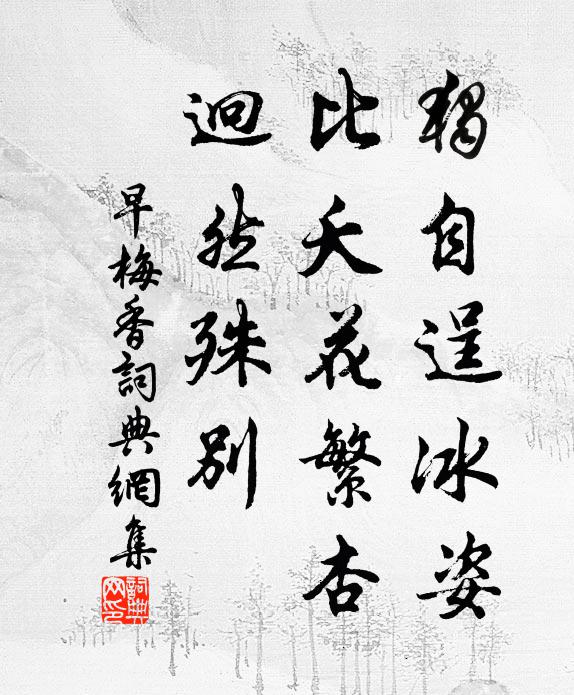 獨自逞冰姿
比夭花繁杏
迥然殊別
早梅香詞典網集
詞典
网印